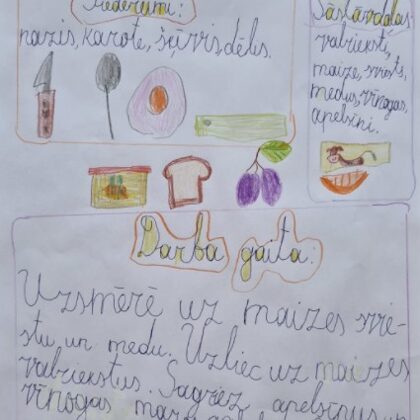 Piederumi:
nazis, karote, šķīvis, dēlis.
Sāstāvdaļas
valrieksti,
maize, sviests,
medus, vīnogas,
apelsīni.
Darba gaita:
Uzsmērē uz maizes svie-
stu, un medu. Uzliec uz maizes
valriekstus. Sagriez apelsīnus un
vīnogas